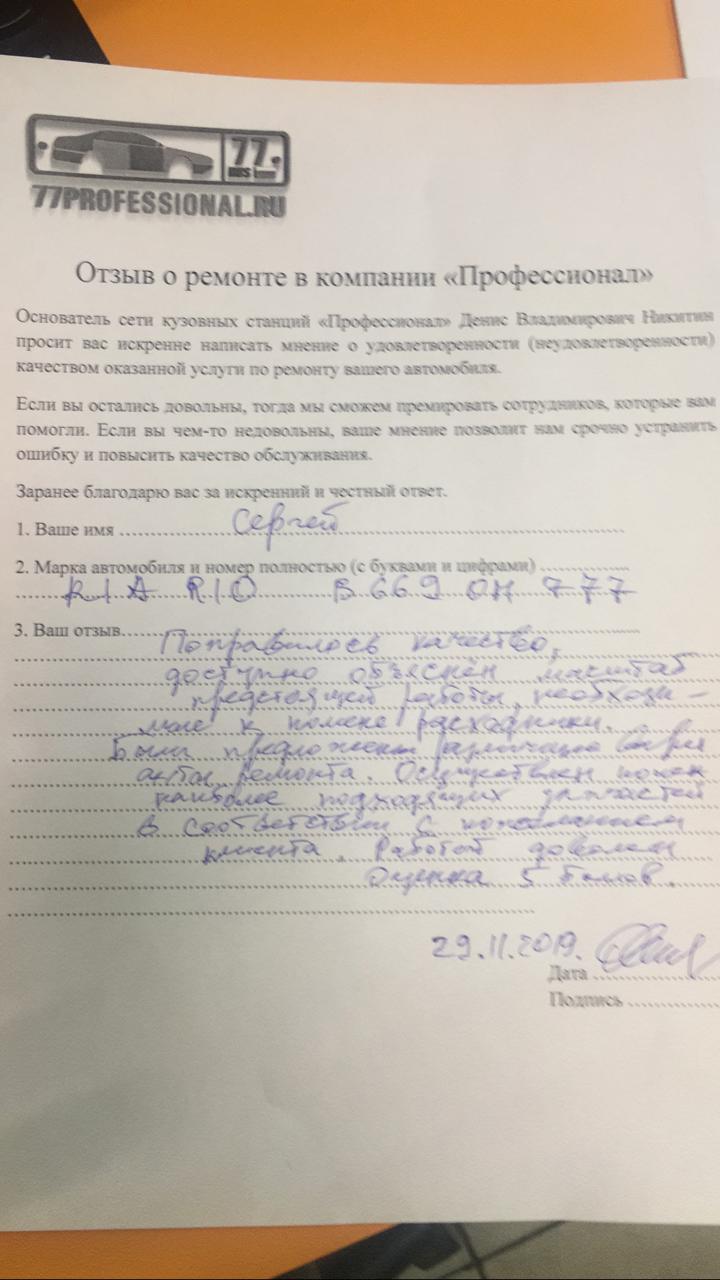 77
RUS
77PROFESSIONAL.RU
Отзыв о ремонте в компании «Профессионал»
Основатель сети кузовных станций «Профессионал» Денис Владимирович Никитин
просит вас искренне написать мнение о удовлетворенности (неудовлетворенности)
качеством оказанной услуги по ремонту вашего автомобиля.
Если вы остались довольны, тогда мы сможем премировать сотрудников, которые вам
помогли. Если вы чем-то недовольны, ваше мнение позволит нам срочно устранить
ошибку и повысить качество обслуживания.
Заранее благодарю вас за искренний и честный ответ.
1. Ваше имя Сергей
2. Марка автомобиля и номер полностью (с буквами и цифрами)
KIA RIO В 669 ОН 777
3. Ваш отзыв Понравилось качество,
доступно объяснён масштаб
предстоящей работы, необходи-
мые к замене расходники.
Были предложены различные вари
анты ремонта. Осуществлен поиск
наиболее подходящих запчастей
в соответствии с
клиента. Работой доволен
Оценка 5 баллов.
29.11.2019.
Дата
Подпись